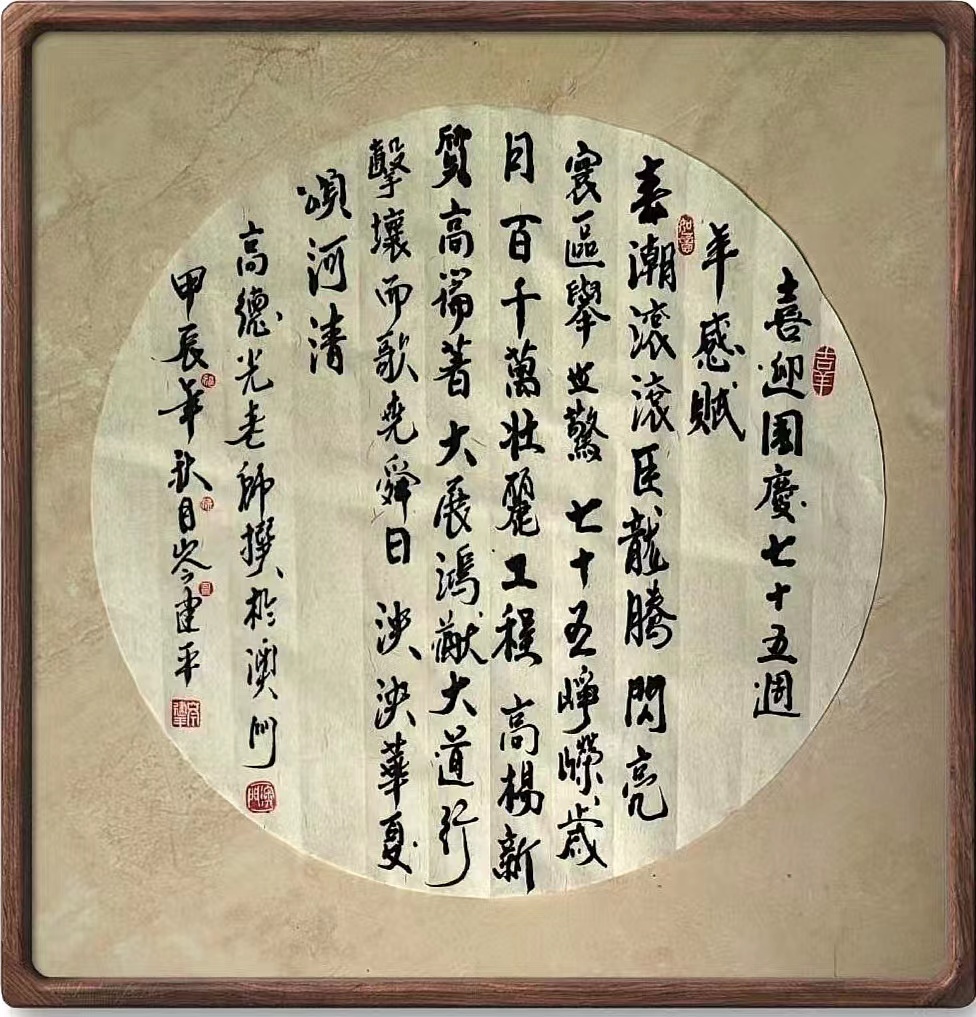 喜迎國慶七十五週
年感賦
春潮滚滚巨龍騰 閃亮
寰區舉世驚 七十五崢嶸歲
月百千萬壯麗工程 高楊新
質高端著大展鴻猷大道行
擊壤而歌堯舜日 泱泱華夏
頌河清
高德光老師撰於澳門
甲辰年秋月岑建平
吉羊
如意
澳門